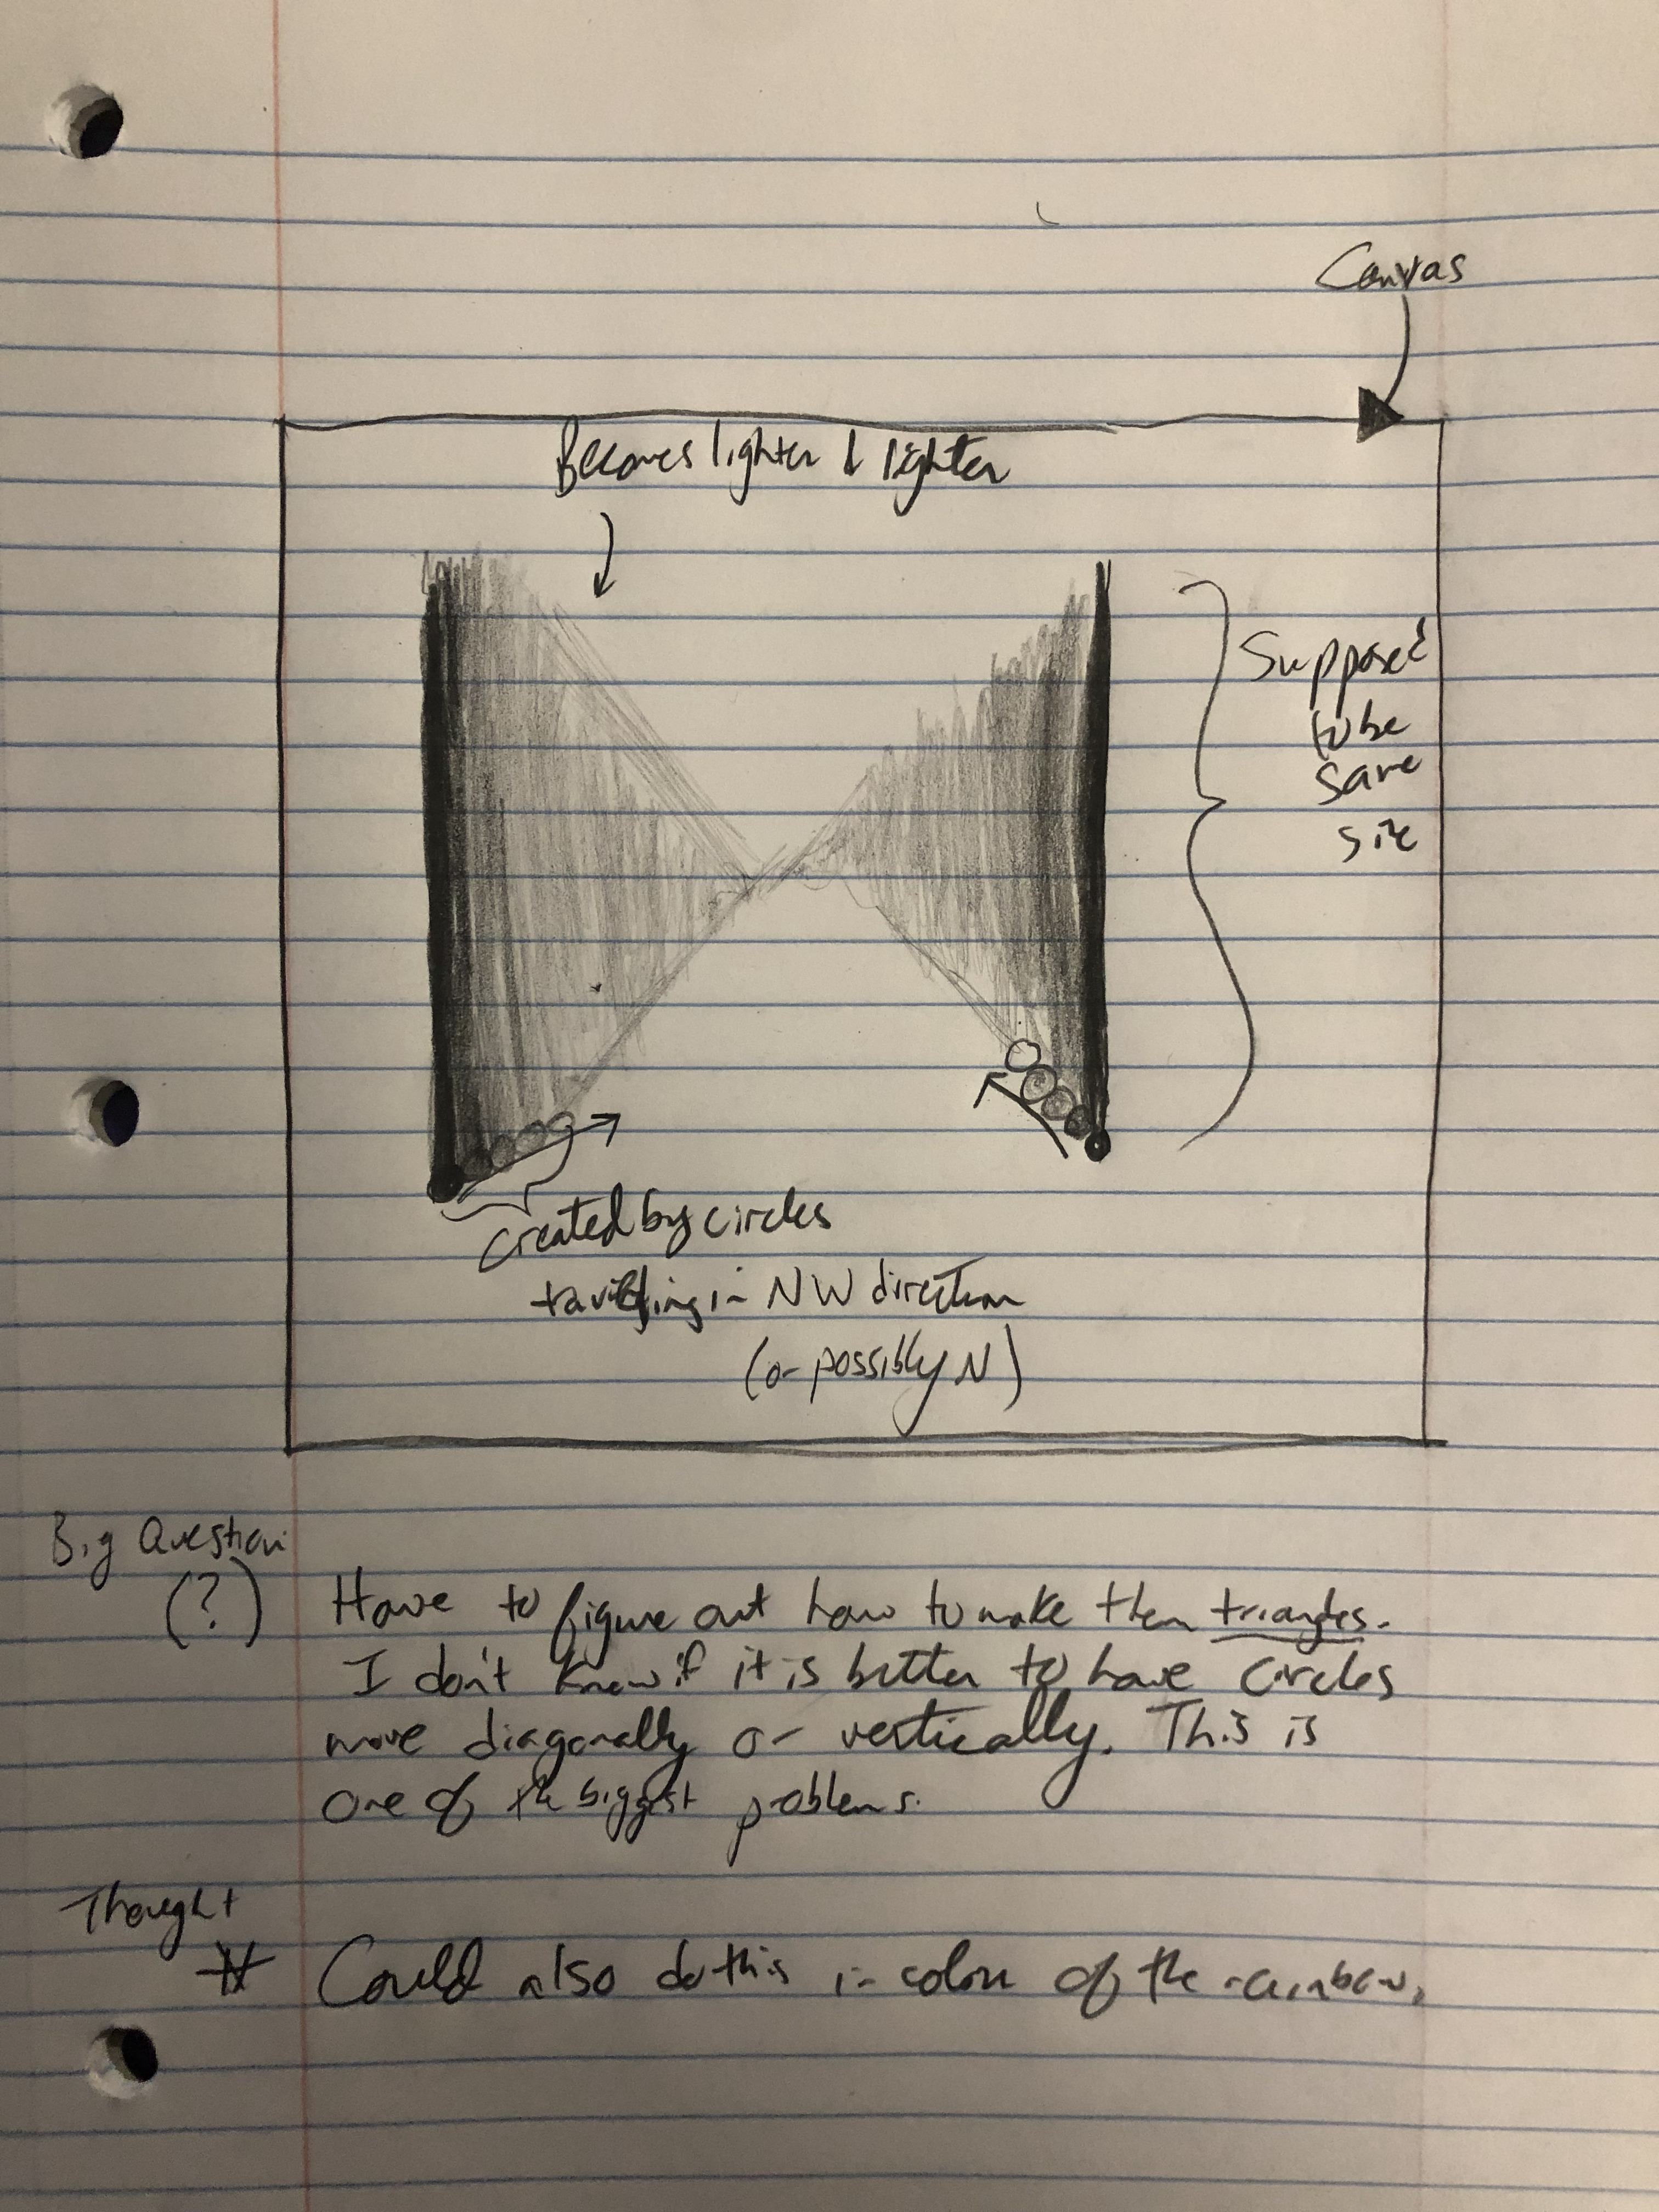 Canvas
Becomes lighter & lighter
Supposed
to be
same
size
created by circles
in NW direction
(or possibly N)
Big Question
(?) Have to figure out how to make them triangles.
I don't know if it is better to have circles
move diagonally or vertically. This is
one of the biggest problems.
Thought
* Could also do this in colors of the rainbow.